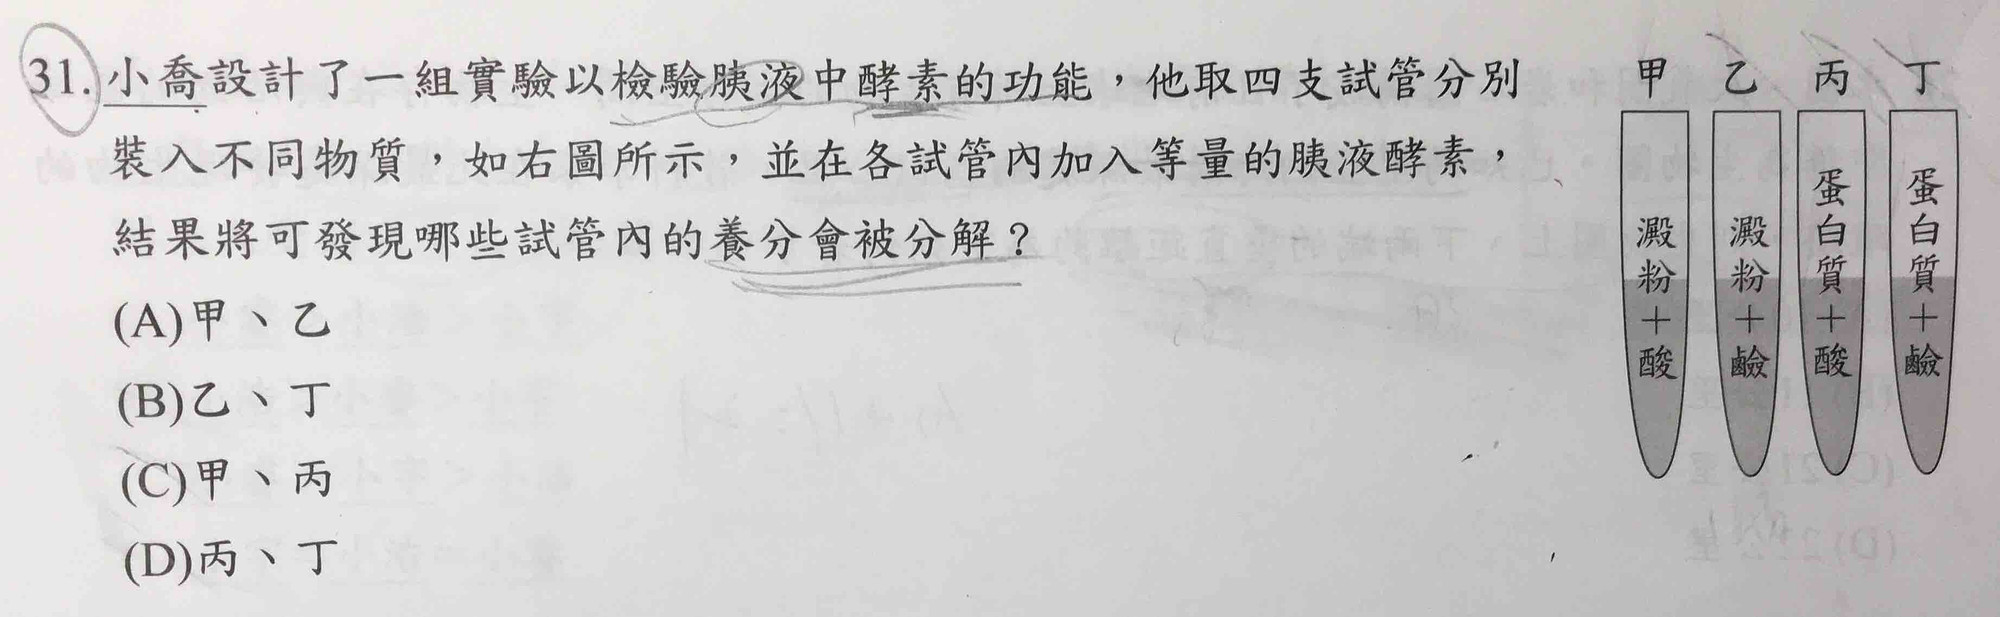 31.小喬設計了一組實驗以檢驗胰液中酵素的功能，他取四支試管分別
裝入不同物質，如右圖所示，並在各試管內加入等量的胰液酵素，
結果將可發現哪些試管內的養分會被分解？
(A)甲、乙
(B)乙、丁
(C)甲、丙
(D)丙、丁
甲 乙 丙 丁
澱粉＋酸
澱粉＋鹼
蛋白質＋酸
蛋白質＋鹼